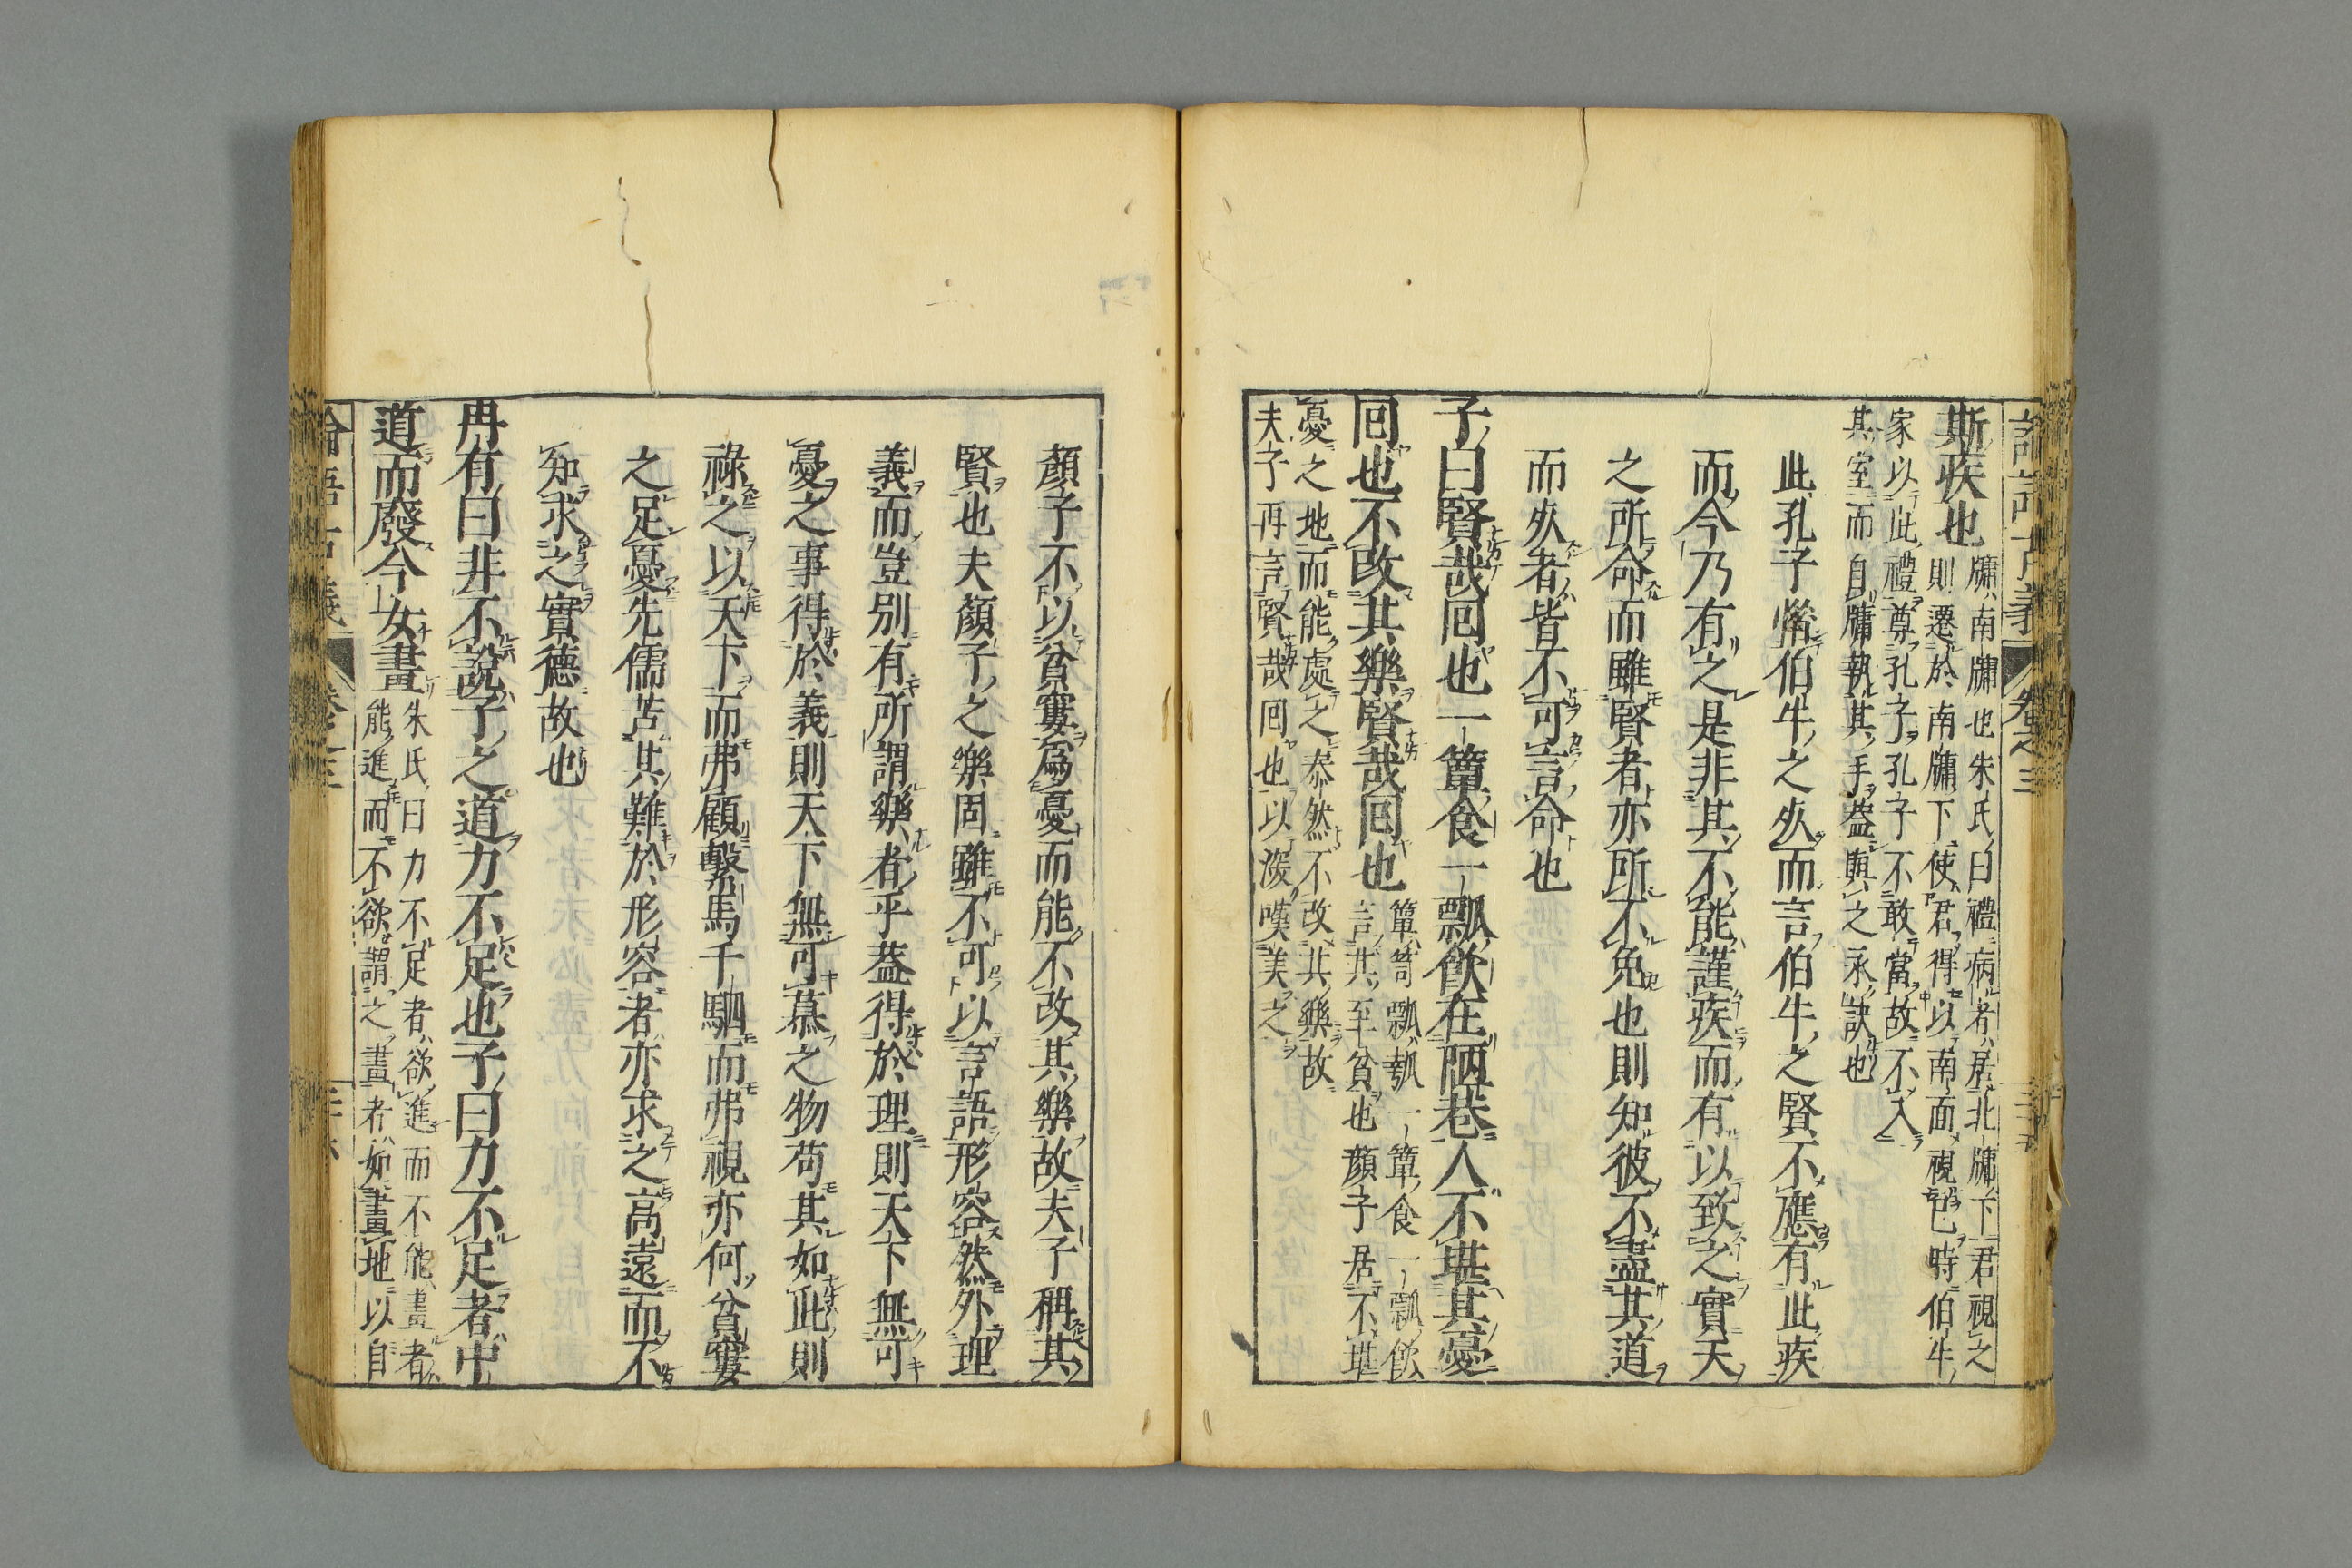 論語古義 卷之三 二十五
斯疾也
牖南牖也朱氏曰禮病者居北牖下君視之
則遷於南牖下使君得以南面視已時伯牛
家以此禮尊孔子孔子不敢當故不入
其室而自牖執其手蓋與之永訣也
此孔子斃伯牛之疚而言伯牛之賢不應有此疾
而今乃有之是非其不能謹疾而有以致之實天
之所命而雖賢者亦所不免也則知彼不盡其道
而疚者皆不可言命也
子曰賢哉回也一簞食一瓢飲在陋巷人不堪其憂
回也不改其樂賢哉回也
簞笥瓢瓠一簞食一瓢飲
言其至貧也顏子居不堪
憂之地而能處之泰然不改其樂故
夫子再言賢哉回也以深嘆美之
顏子不以貧窶爲憂而能不改其樂故夫子稱其
賢也夫顏子之樂固雖不可以言語形容然外理
義而豈別有所謂樂者乎蓋得於理則天下無可
憂之事得於義則天下無可慕之物苟其如此則
祿之以天下而弗顧繫馬千駟而弗視亦何貧窶
之足憂先儒苦其難於形容者亦求之高遠而不
知求之實德故也
冉有曰非不說子之道力不足也子曰力不足者中
道而廢今女畫
朱氏曰力不足者欲進而不能畫者
能進而不欲謂之畫者如畫地以自
論語古義 卷之三